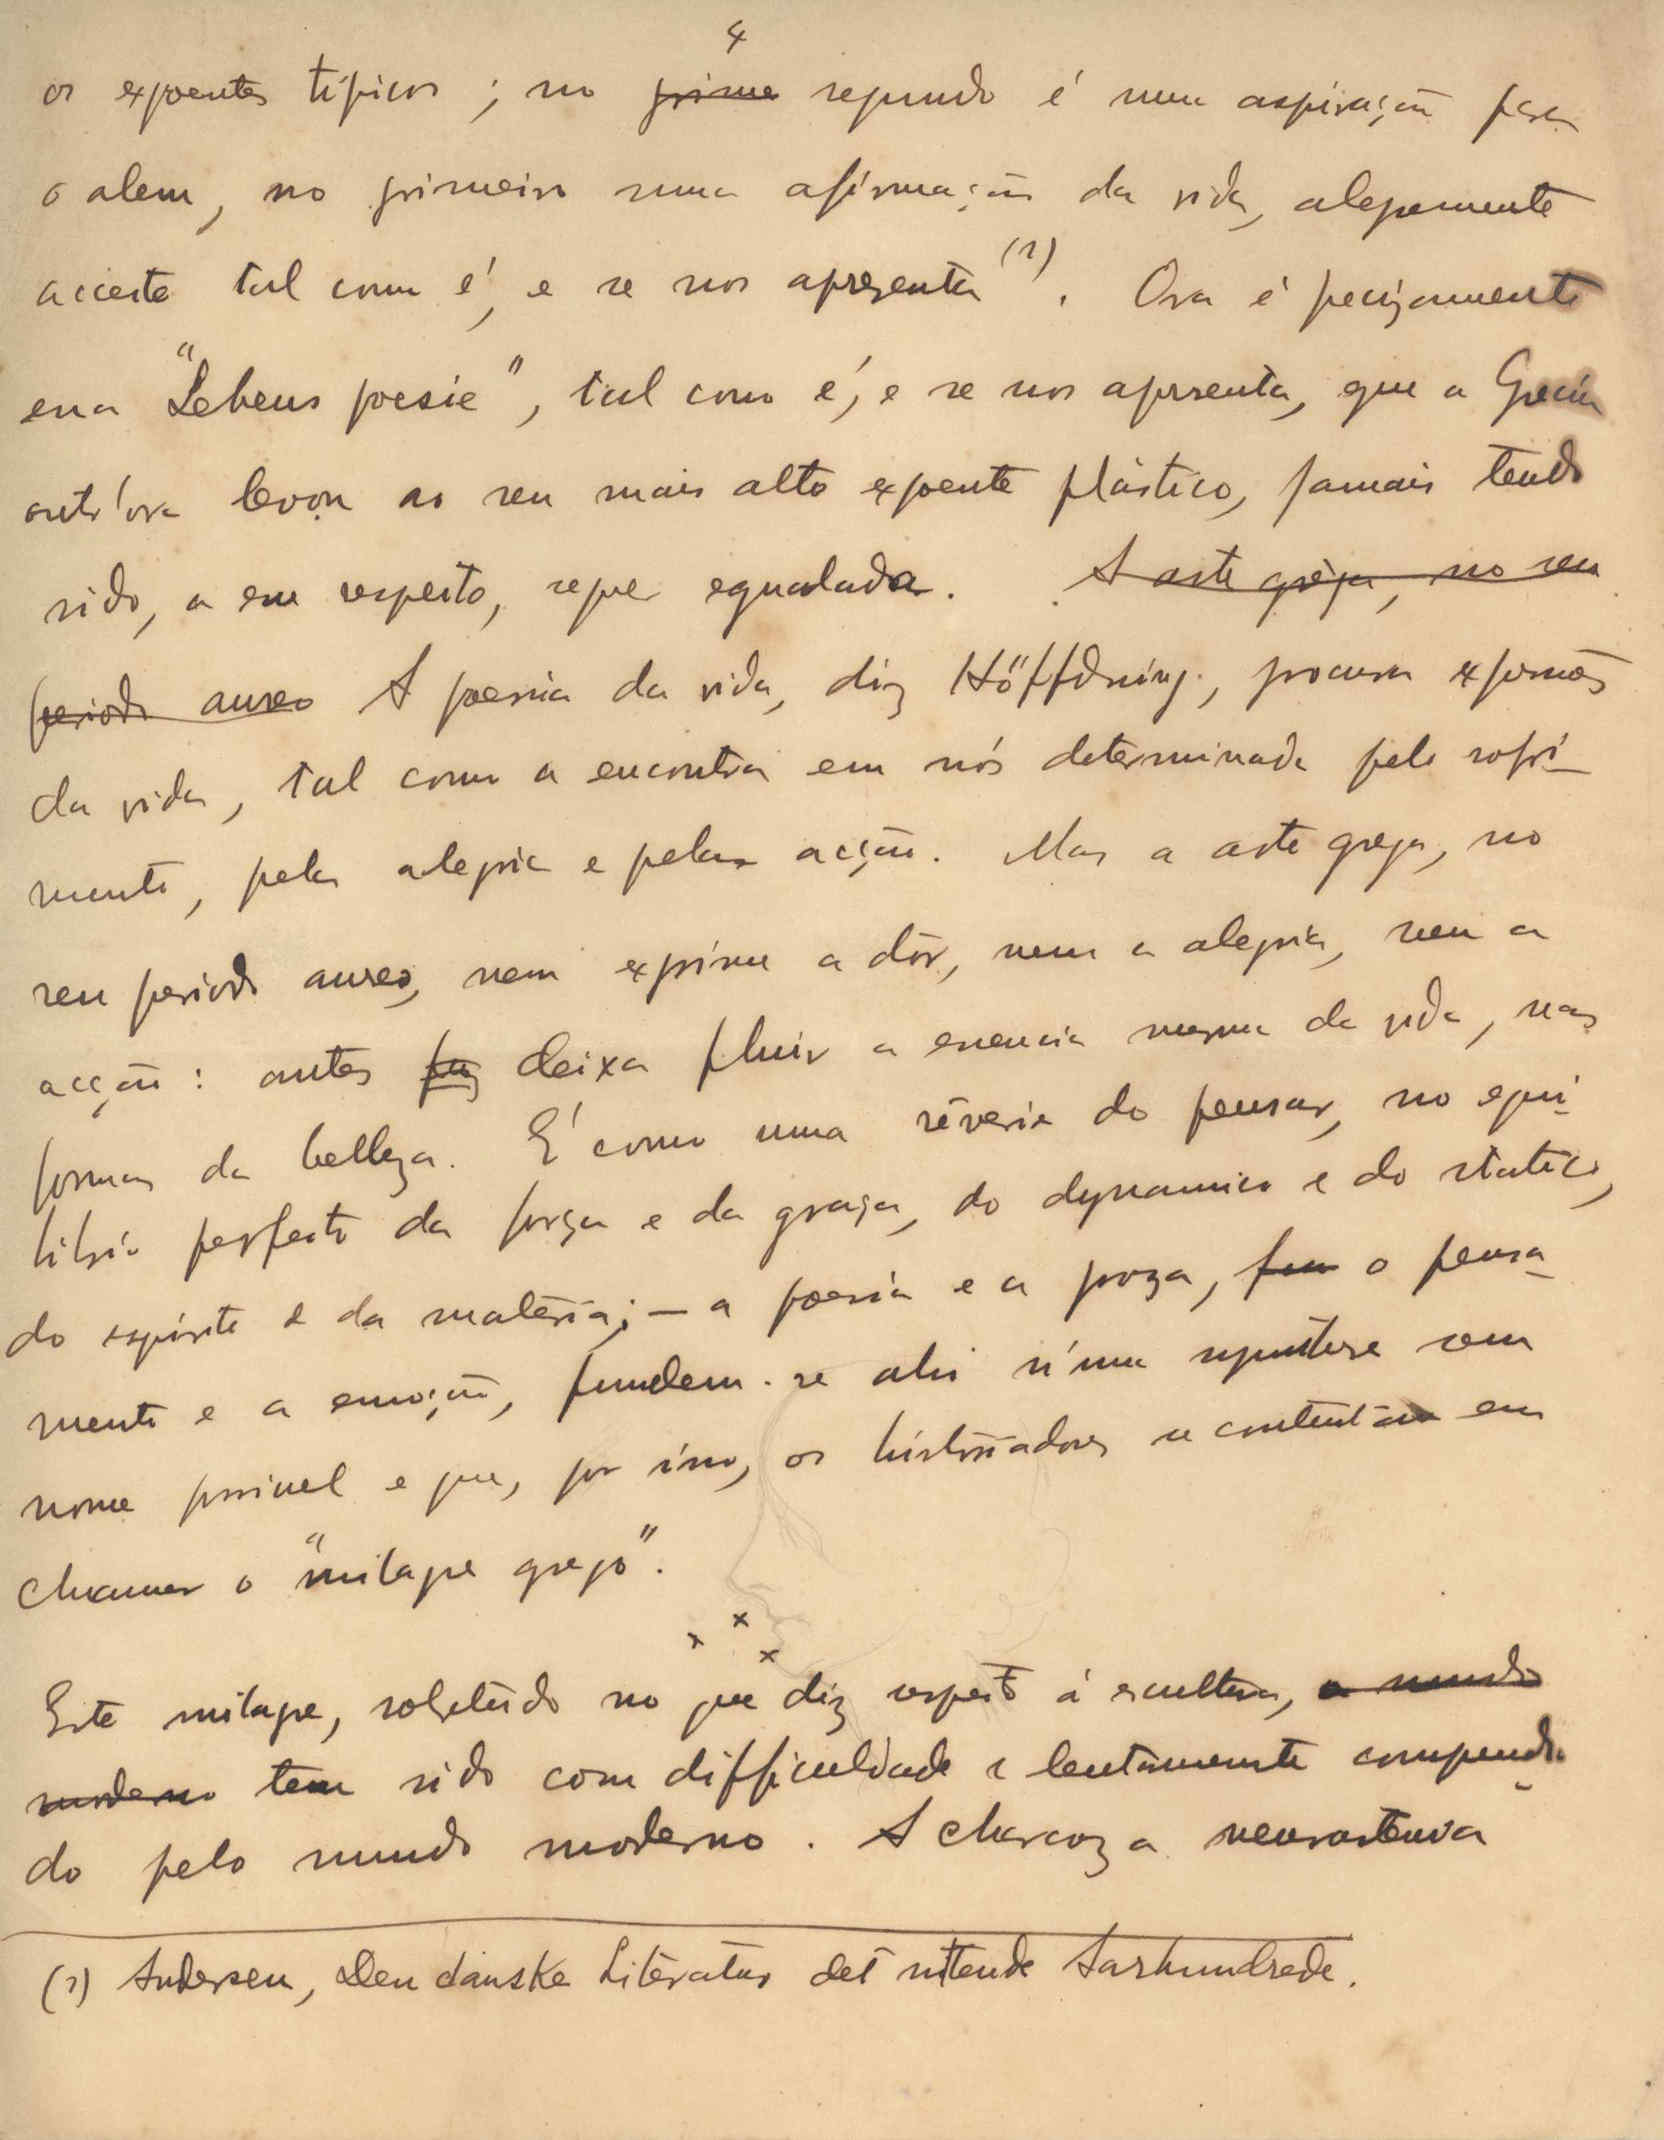 4
os expoentes típicos; no prime segundo é uma aspiração para
o alem, no primeiro uma afirmação da vida, alegremente
acceite tal como é, e se nos aprezenta (1). Ora é precizamente
essa "Lebens poesie", tal como é, e se nos aprezenta, que a Grecia
outr'ora levou ao seu mais alto expoente plástico, jamais tendo
sido, a esse respeito, sequer egualada. A arte grega, no seu
periodo aureo A poesia da vida, diz Höffdning, procura expressões
da vida, tal como a encontra em nós determinada pelo sofri-
mento, pela alegria e pela acção. Mas a arte grega, no
seu periodo aureo, nem exprime a dôr, nem a alegria, nem a
acção: antes faz deixa fluir a essencia mesma da vida, nas
formas da belleza. É como uma rêverie do pensar, no equi-
librio perfeito da força e da graça, do dynamico e do statico,
do espirito e da materia; — a poesia e a proza, o pensa-
mento e a emoção, fundem-se ahi n'uma synthese sem
nome possivel e que, por isso, os historiadores se contentam em
chamar o "milagre grego".
x x x
Este milagre, sobretudo no que diz respeito á escultura, o mundo
moderno tem sido com difficuldade e lentamente comprendi-
do pelo mundo moderno. A cloroz a neurastenia
(1) Andersen, Den danske Literatur det nittende Aarhundrede.